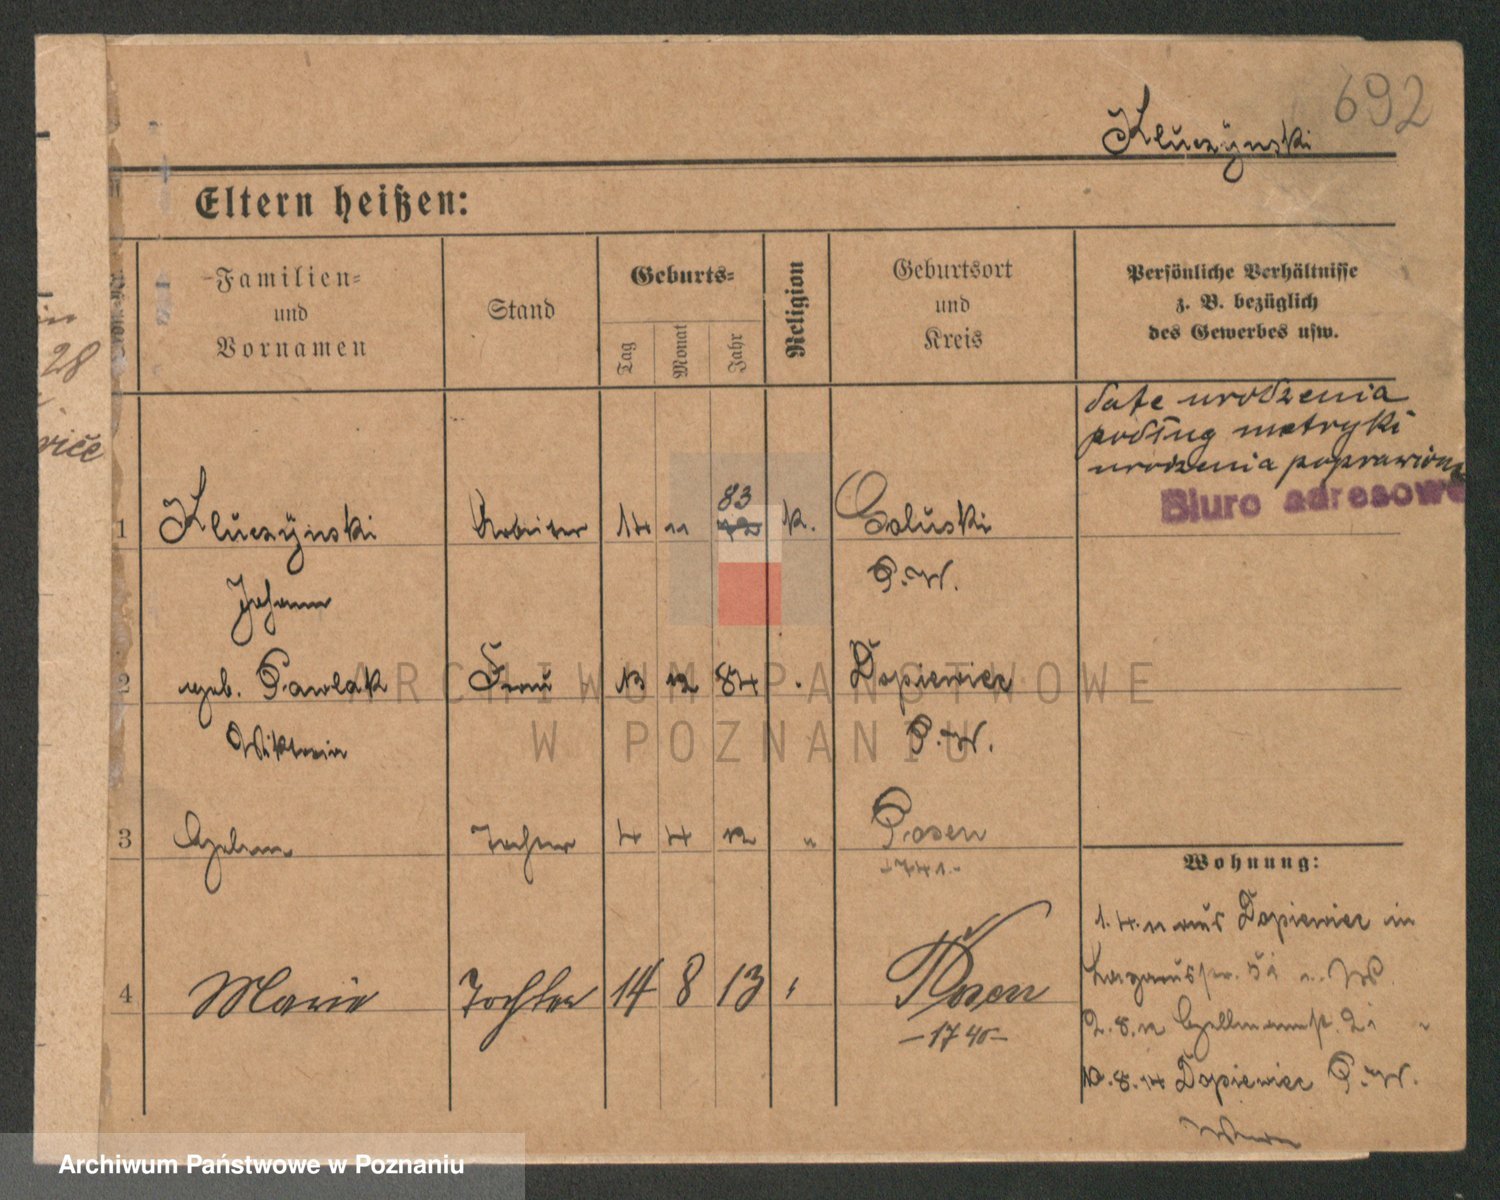 692
Kluczÿnski
Eltern heißen:
Familien=
und
Vornamen
Stand
Geburts=
Tag
Monat
Jahr
Religion
Geburtsort
und
Kreis
Persönliche Verhältnisse
z. B. bezüglich
des Gewerbes usw.
28
date urodzenia
podług metryki
urodzenia poprawiono
Biuro adresowe
1 Kluczÿnski Arbeiter 14 11 83 72 k. Goluski
Johann P.W.
2 geb. Pawlak Frau 13 12 84 Dopiewiec
Wiktoria P.W.
3 Tochter 4 4 12 " Posen
-1741.-
4 Marie Tochter 14 8 13 " Posen
-1740-
Wohnung:
1.4.11 aus Dopiewiec in
2.8.12
10.8.14 Dopiewiec P.W.
ARCHIWUM PAŃSTWOWE
W POZNANIU
Archiwum Państwowe w Poznaniu